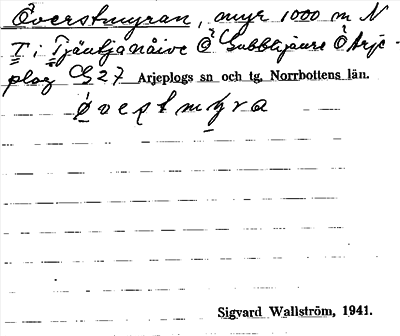 Överstmyran, myr 1000 m N
T i Tjäutjanåive Ö Gubblijaure Ö Arje-
plog G27 Arjeplogs sn och tg. Norrbottens län.
øvestmyra
Sigvard Wallström, 1941.